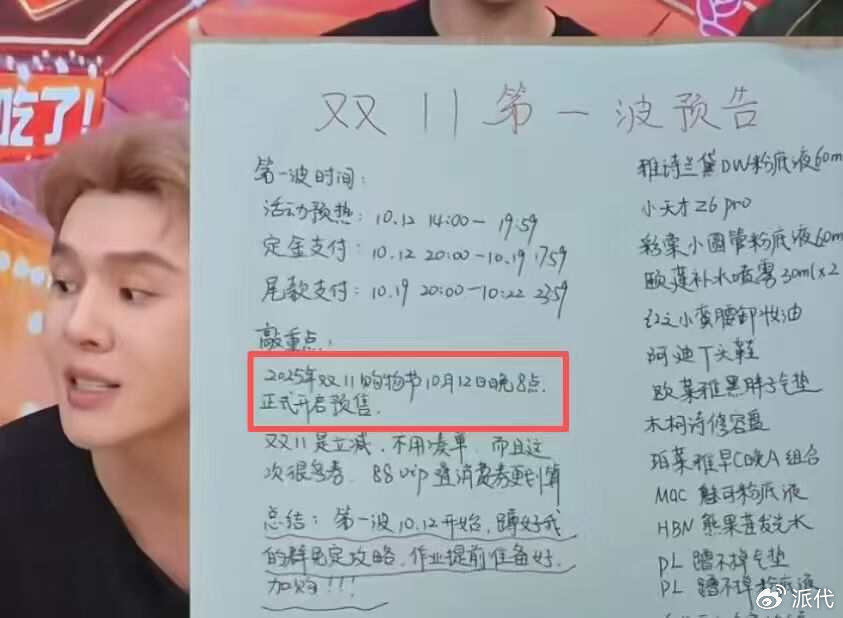 吃了!
双11第一波预告
第一波时间:
活动预热: 10.12 14:00-19:59
定金支付: 10.12 20:00-10.19 17:59
尾款支付: 10.19 20:00-10.22 23:59
敲重点:
2025年双11购物节10月12日晚8点.
正式开启预售.
双11是立减,不用凑单,而且这
次很多券,88vip叠消费券更划算
总结: 第一波10.12开始,蹲好我
的群 定攻略,作业提前准备好,
加购!!!
雅诗兰黛DW粉底液60m
小天才Z6 pro
彩棠小圆管粉底液60m
颐莲补水喷雾30ml x2
红之小蛮腰卸妆油
阿迪T头鞋
欧莱雅黑胖子气垫
木柯诗修容盘
珀莱雅早C晚A组合
Mac 魅可粉底液
HBN 熊果苷发光水
PL 蹭不掉气垫
PL 蹭不掉粉底液
派代